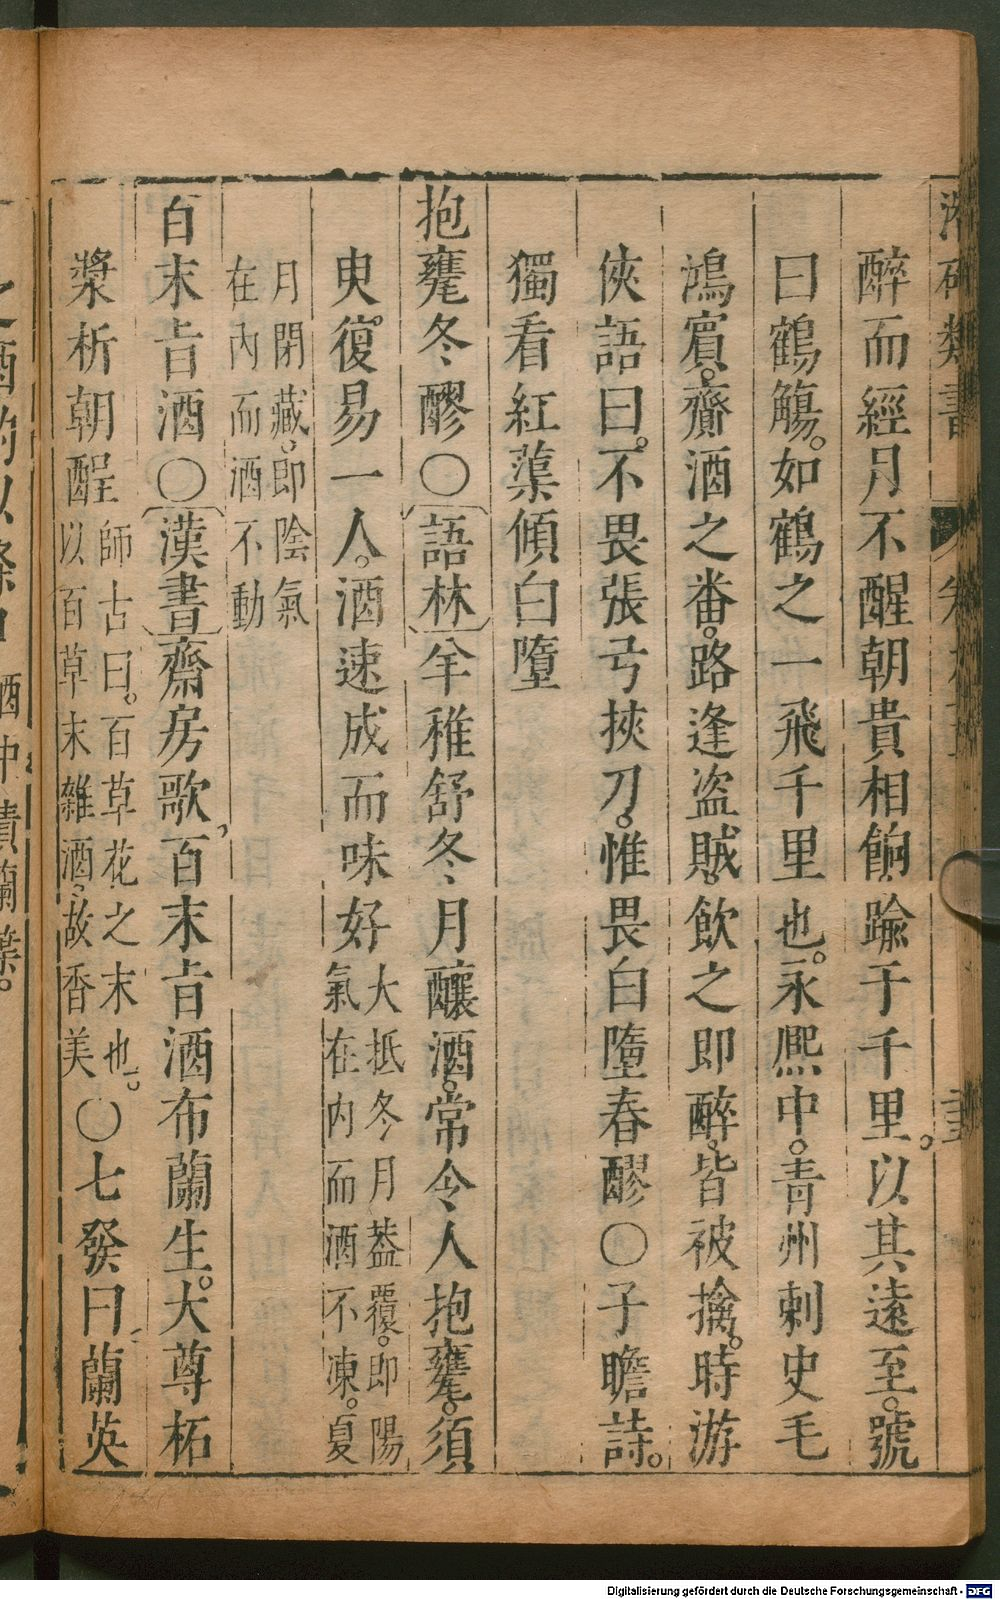 醉而經月不醒朝貴相餉踰于千里。以其遠至。號
曰鶴觴。如鶴之一飛千里也。永熈中。青州刺史毛
鴻賓。齎酒之畨。路逢盗賊。飲之即醉。皆被擒。時游
俠語曰。不畏張弓挾刀。惟畏白墮春醪〇子瞻詩。
獨看紅蕖傾白墮
抱甕冬醪〇語林羊稚舒冬月釀酒。常令人抱甕。須
臾。復易一人。酒速成而味好大抵冬月葢覆。即陽
氣在内而酒不凍。夏
月閉藏。即陰氣
在內而酒不動
百末旨酒〇漢書齋房歌。百末旨酒布蘭生。大尊柘
漿析朝酲師古曰。百草花之末也。
以百草末雜酒。故香美〇七發曰蘭英
之酒酌以滌口 酒中漬蘭葉。
類書 卷
Digitalisierung gefördert durch die Deutsche Forschungsgemeinschaft - DFG